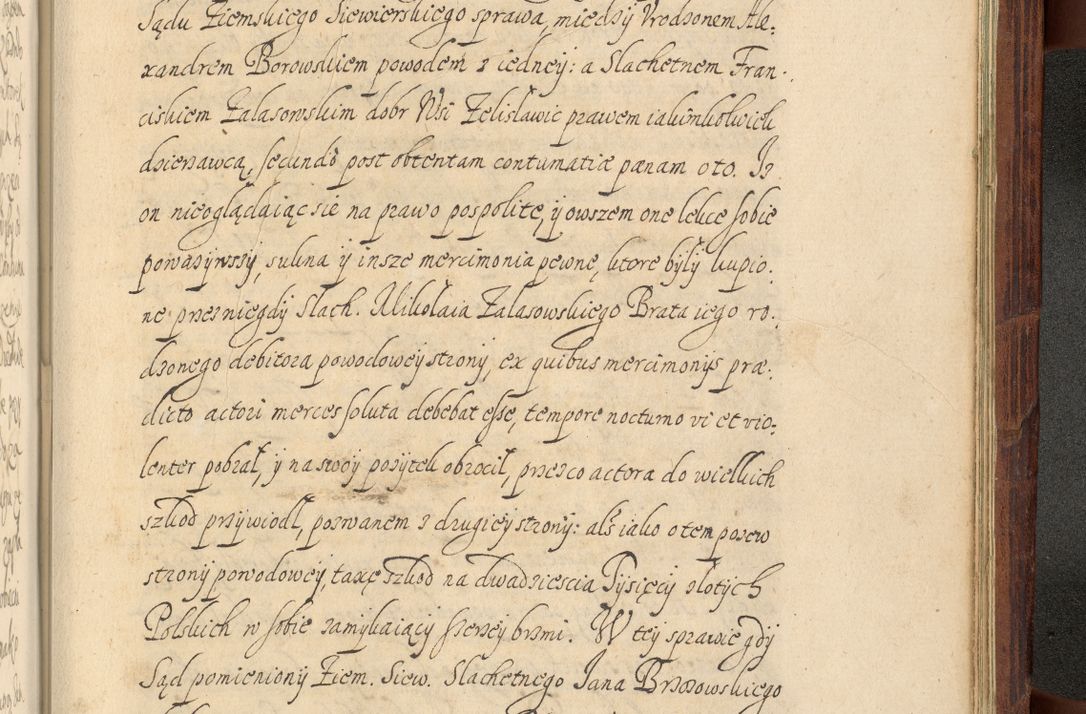 Sądu Ziemskiego Siewierskiego sprawa, miedzy Urodzonem Ale:
xandrem Borowskiem powodem z iedney: a Slachetnem Fran:
ciskiem Zalasowskim dobr Wsi Zelisławic prawem iakimkolwiek
dzierzawcą, secundo post obtentam contumatiæ pænam oto. Iz
on nieoglądaiąc sie na prawo pospolite, ÿ owszem one lekce sobie
powazÿwszÿ, sukna ÿ insze mercimonia pewne, ktore bÿlÿ kupio:
ne przez niegdÿ Slach. Mikołaia Zalasowskiego Brata iego ro:
dzonego debitora powodoweÿ stronÿ, ex quibus mercimonÿs præ:
dicto actori merces soluta debebat esse, tempore nocturno vi et vio:
lenter pobrał, ÿ na swoÿ pozÿtek obrocił, przez co actora do wielkich
szkod przÿwiodł, pozwanem z drugieÿ stronÿ: als iako o tem pozew
stronÿ powodoweÿ, taxę szkod na dwadziescia Tÿsięcÿ złotÿch
Polskich w sobie zamÿkaiącÿ szerzeÿ brzmi. W teÿ sprawie gdÿ
Sąd pomienionÿ Ziem. Siew. Slachetnego Jana Brzozowskiego